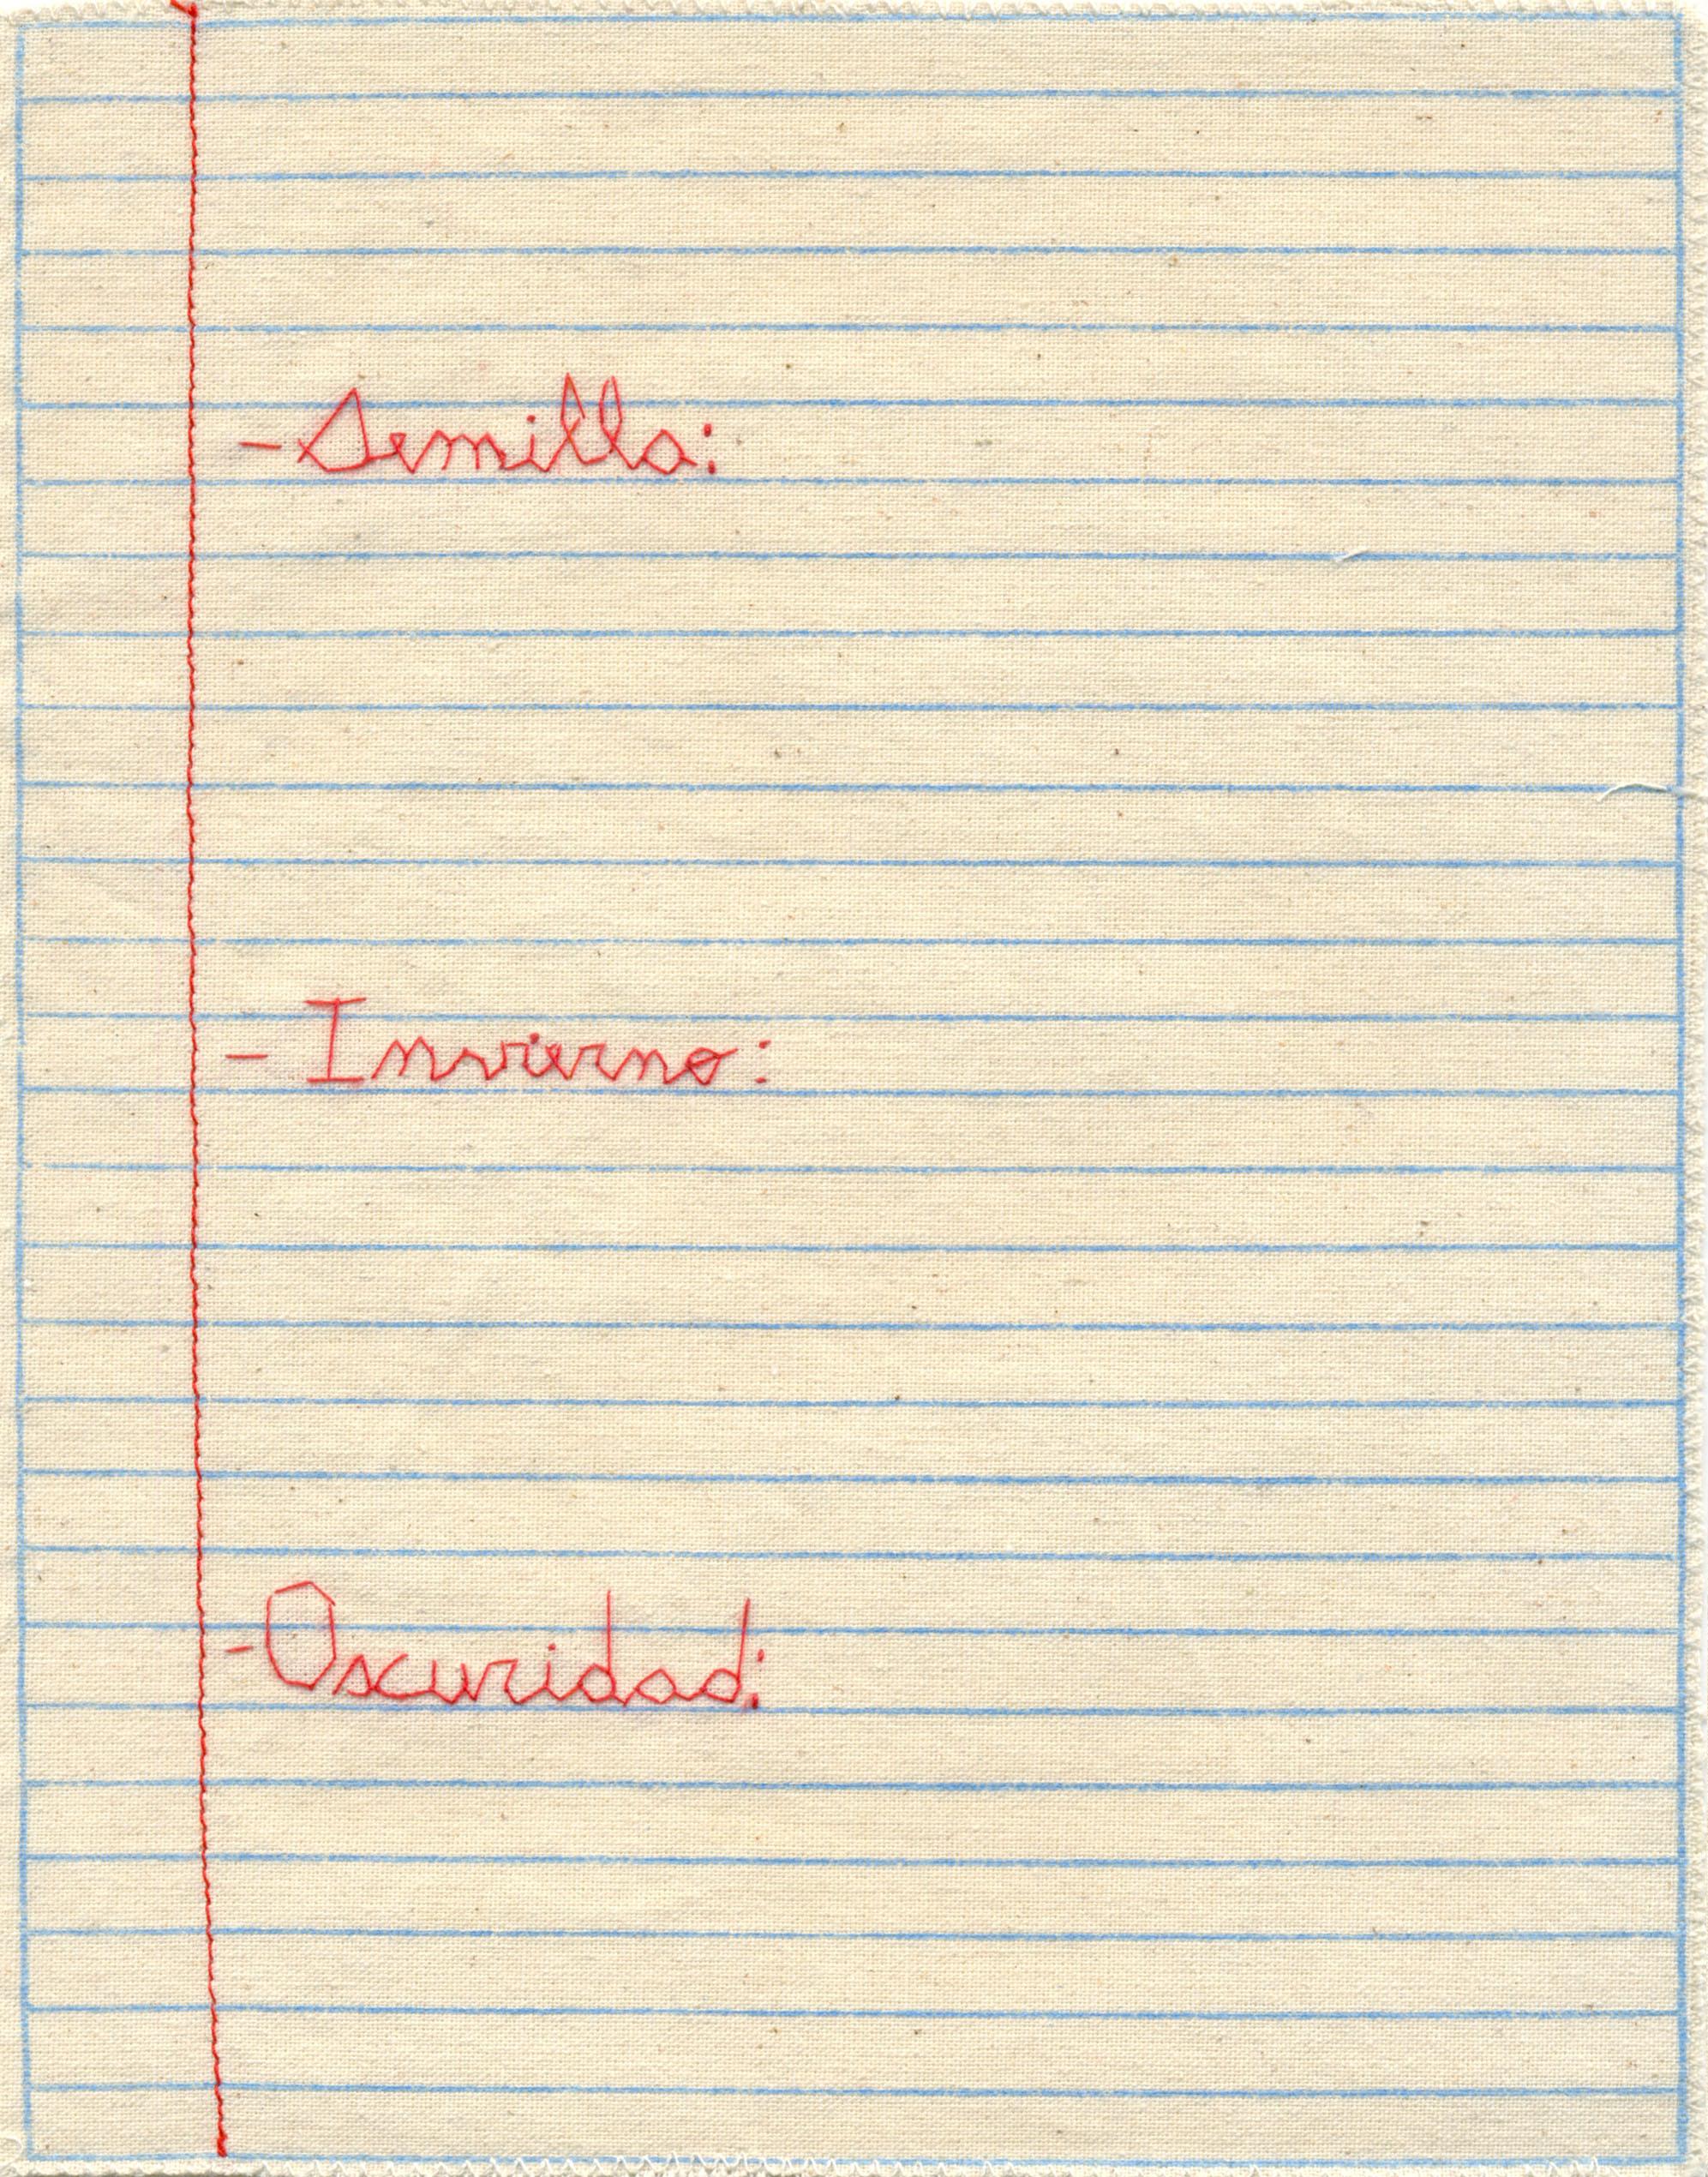 - Semilla:
- Invierno:
- Oscuridad: